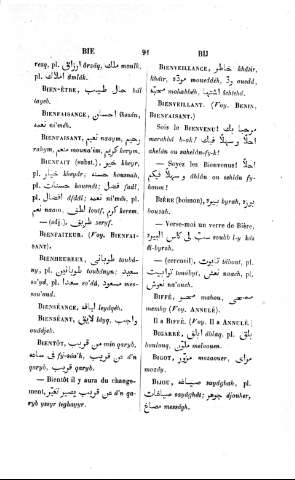 BIE
91
BIJ
resq, pl. ارزاق árzáq, ملك moulk,
pl. املاك ámlák.
BIEN-ÊTRE, حال طيب hál
tayeb.
BIENFAISANCE, احسان ihasán,
نعمه ni'méh.
BIENFAISANT, نعيم naaym, رحيم
rahym, منعم moune'im, كريم kerym.
BIENFAIT (subst.), خير kheyr,
pl. خيار kheyár; حسنه housnah,
pl. حسنات housnát; فضل fadl,
pl. افضال áfdál; نعمه ni'mah, نعم
naam, لطف loutf, كرم kerem.
— (adj.), ظريف zeryf.
BIENFAITEUR. (Voy. BIENFAI-
SANT).
BIENHEUREUX, طوباني toubá-
ny, pl. طوبانيين toubányn; سعيد
sa'yd, pl. سعدا so'dá, مسعود mes-
sou'oud.
BIENSÉANCE, لياقه leyáqéh.
BIENSÉANT, لايق láyq, واجب
ouádjeb.
BIENTÔT, من قريب min qaryb,
في ساعه fy-sáa'h, عن قريب a'n
qaryb, قريب qaryb.
— Bientôt il y aura du change-
ment, عن قريب يصير تغيّر a'n qa-
ryb yssyr teghayyr.
BIENVEILLANCE, خاطر khátir,
khátir, مودّه moueddéh, ودّ ouodd,
محبّه mahabbéh, اشتها ichtehá.
BIENVEILLANT. (Voy. BENIN,
BIENFAISANT.)
Sois le BIENVENU! مرحبا بك
marahbá b-ak! اهلا وسهلا فيك
ahelán ou sahelán-fy-k!
— Soyez les Bienvenus! اهلا
وسهلا فيكم áhlán ou sahlán fy-
koum!
BIÈRE (boisson), بيره byrah, بوزه
bouzah.
— Verse-moi un verre de Bière,
صبّ لي كاس البيره soubb l-y kás
él-byrah.
— (cercueil), تابوت tábout, pl.
توابيت touábyt, نعش naach, pl.
نعوش na'ouch.
BIFFÉ, محو mahou, ممحي
memhy (Voy. ANNULÉ).
Il a BIFFÉ. (Voy. Il a ANNULÉ.)
BIGARRÉ, ابلق áblaq, pl. بلق
boulouq, ملوّن melouuen.
BIGOT, مزوّر mouzaouer, مرای
mozdy.
BIJOU, صياغه sayághah, pl.
صياغات sayághát; جوهر djouher,
مصاغ messágh.